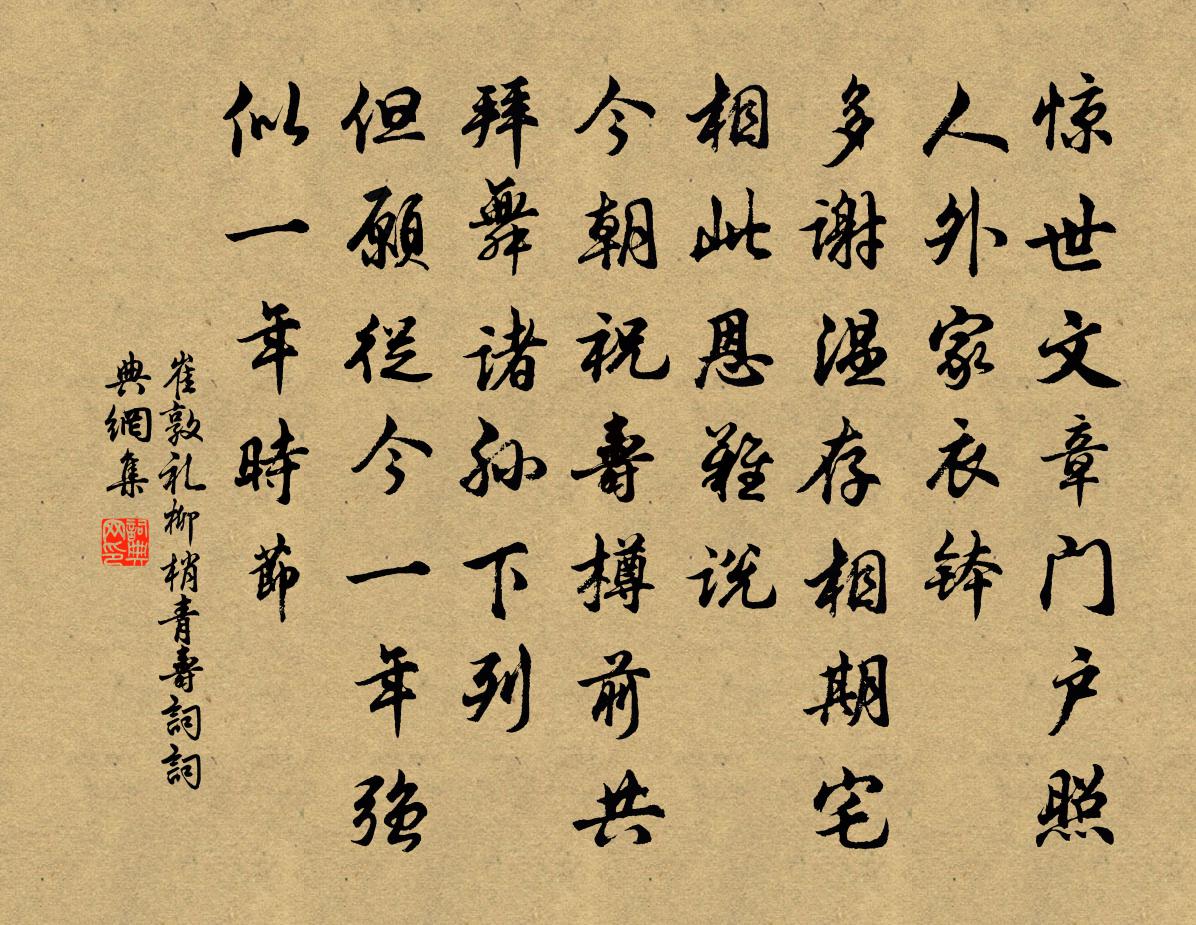 惊世文章门户照
人外家衣钵
多谢温存相期宅
相此恩难说
今朝祝寿樽前共
拜舞诸孙下列
但愿從今一年强
似一年時節
崔敦礼柳梢青寿詞詞
典網集
詞典网印